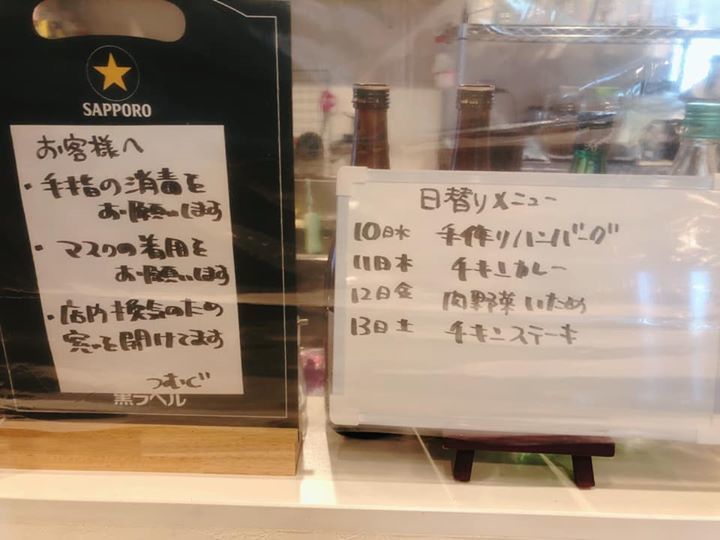 SAPPORO
お客様へ
・手指の消毒を
お願いします
・マスクの着用を
お願いします
・店内換気のため
窓を開けてます
つむぐ
黒ラベル
日替りメニュー
10日水 手作りハンバーグ
11日木 チキンカレー
12日金 肉野菜いため
13日土 チキンステーキ